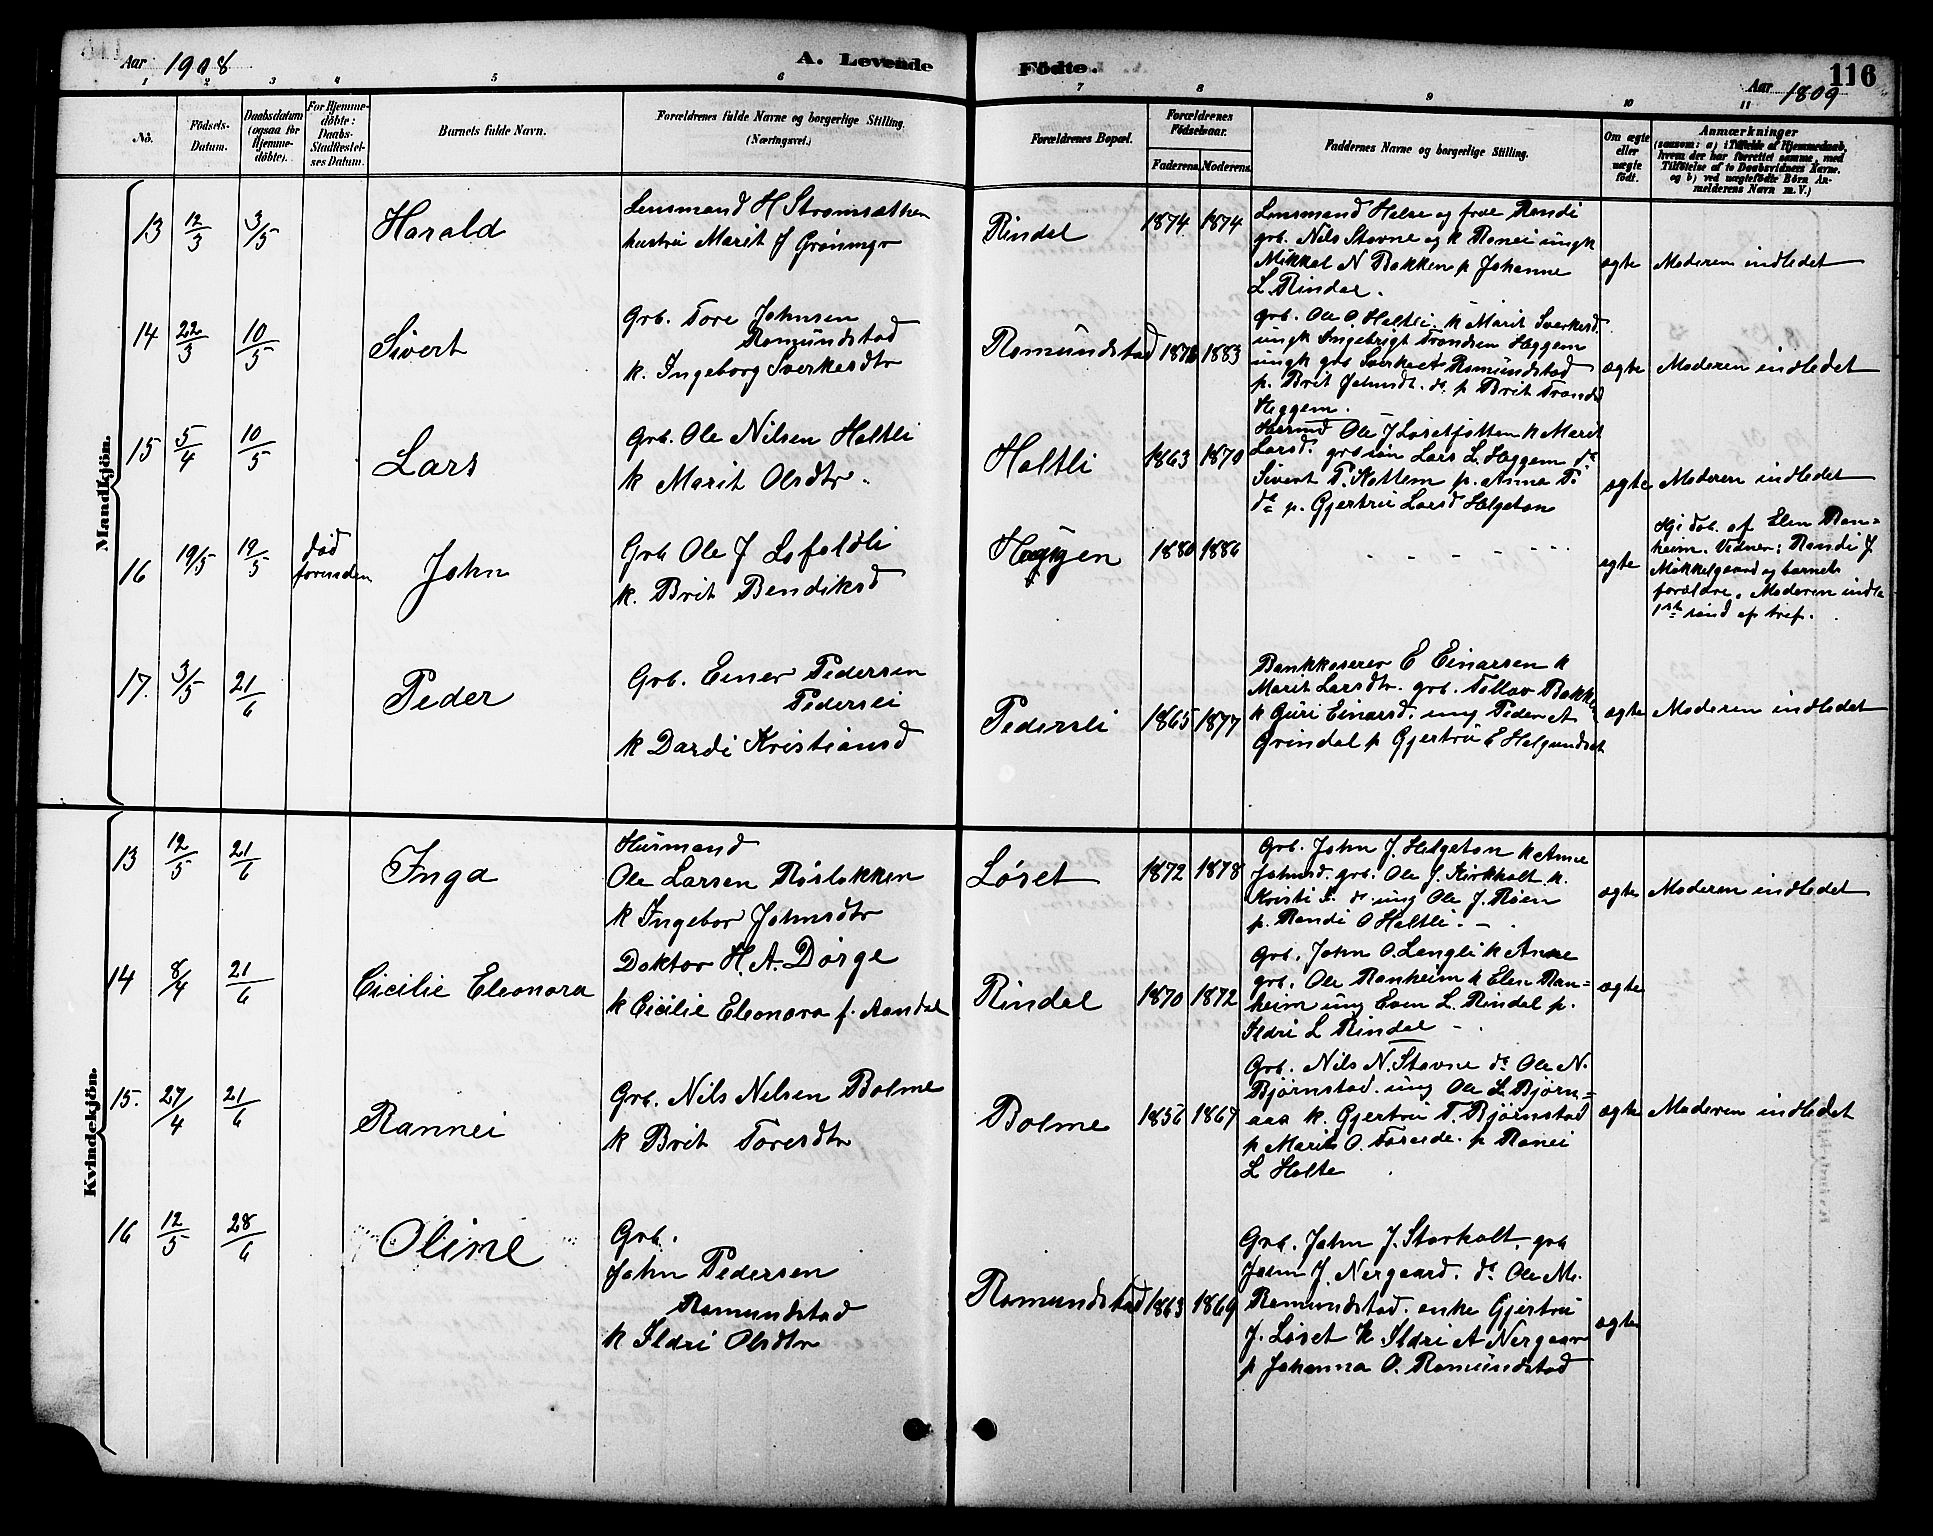 Aar 1908
A. Levende
Födte.
Aar 1809
116
1 2 3 4 5 6 7 8 9 10 11
No.
Födsels-
Datum.
Daabsdatum
(ogsaa for
Hjemme-
döbte).
For Hjemme-
döbte:
Daabs-
Stadfæstel-
ses Datum.
Barnets fulde Navn.
Forældrenes fulde Navne og borgerlige Stilling.
(Næringsvei.)
Forældrenes Bopæl.
Forældrenes
Födselsaar.
Faderens. Moderens.
Faddernes Navne og borgerlige Stilling.
Om ægte
eller
uægte
födt.
Anmærkninger
(saasom: a) i Tilfælde af Hjemmedaab,
hvem der har forrettet samme, med
Tilföielse af to Daabsvidners Navne.
og b) ved uægtefödte Börn An-
melderens Navn m. V.)
Mandkjön.
13 12/3 3/5
Harald
Lensmand H Strømsæther
hustru Marit J Grønmyr
Rindal
1874 1874
Lensmand Helse og frue Randi
grb. Nils Stavne og k Ranei ungk
Mikkel N Bakken p Johanne
L Rindal.
ægte
Moderen indledet
14 22/3 10/5
Sivert
Grb. Tore Johnsen
Romundstad
k. Ingeborg Sverkesdtr
Romundstad
1878 1883
grb. Ole O. Holtli. k Marit Sverkesd.
ungk Ingebrigt Trondsen Heggem
ungk gbs Sverke A Romundstad
p. Brit Johnsdt. ds p Brit Trondsd
Heggem.
ægte
Moderen indledet
15 5/4 10/5
Lars
Grb. Ole Nilsen Holtli
k Marit Olsdtr.
Holtli
1863 1870
Husmd Ole J Løsetfotten k Marit
Larsd. grb søn Lars L. Heggem ds
Sivert T. Kattem p. Anne T.
ds p. Gjertru Larsd Helgeton
ægte
Moderen indledet
16 19/5 19/5
død
forinden
John
Grb Ole J Lofaldli
k. Brit Bendiksd
Haugen
1880 1886
ægte
Hj. døb. af Elen Ran=
heim. Vidner: Randi J
Mikkelgaard og barnets
forældre. Moderen indle
17. 3/5 21/6
Peder
Grb. Einer Pedersen
Pedersli
k Dardi Kristiansd
Pedersli
1865 1877
Bankkaserer E Einarsen k
Marit Larsdtr. grb. Tollav Bakke
k Guri Einarsd. ung Peder A
Grindal p Gjertru E Helgundset
ægte
Moderen indledet
Kvindekjön.
13 12/5 21/6
Inga
Husmand
Ole Larsen Røsløkken
k Ingebor Johnsdtr
Løset
1872 1878
Grb. John J. Helgeton k Anne
Johnsd. grb. Ole J. Kirkholt k.
Kristi I. ds. ung Ole J. Røen
p. Randi O Holtli.
ægte
Moderen indledet
14 8/4 21/6
Cicilie Eleonora
Doktor H. A. Dørge
k Cicilie Eleonora f. Aandal
Rindal
1870 1872
Grb. John O. Langli k Anne
grb. Ole Ranheim k Elen Ran=
heim ung Even L. Rindal p.
Ildri L Rindal
ægte
15. 27/4 21/6
Rannei
Grb. Nils Nilsen Bolme
k Brit Toresdtr
Bolme
1856 1867
Grb. Nils N. Stavne ds Ole N.
Bjørnstad. ung Ole L. Bjørn=
aas k. Gjertru T. Bjørnstad
p Marit O. Toreide. p Ranei
L Halte
ægte
Moderen indledet
16 12/5 28/6
Oline
Grb.
John Pedersen
Romundstad
k Ildri Olsdtr
Romundstad
1863 1869
Grb. John J. Storholt. grb
John J. Nergaard. ds Ole M.
Romundstad. enke Gjertru
J. Løset k Ildri A Nergaar
p Johanna O. Romundstad
ægte